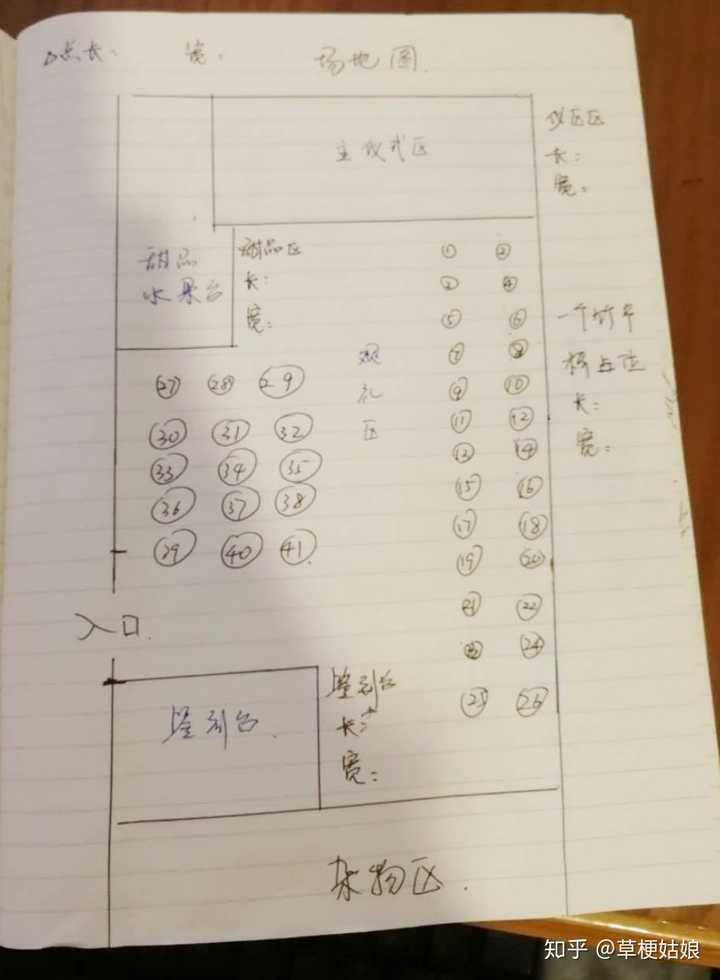 长: 宽: 场地图
主仪式区
仪式区
长:
宽:
甜品
水果台
甜品区
长:
宽:
① ②
② ④
⑤ ⑥
⑦ ⑧
⑨ ⑩
⑪ ⑫
⑬ ⑭
⑮ ⑯
⑰ ⑱
⑲ ⑳
㉑ ㉒
㉔
㉕ ㉖
观
礼
区
一个竹节
椅占位
长:
宽:
㉗ ㉘ ㉙
㉚ ㉛ ㉜
㉝ ㉞ ㉟
㊱ ㊲ ㊳
㊴ ㊵ 41
入口
签到台
签到台
长:
宽:
杂物区
知乎 @草梗姑娘